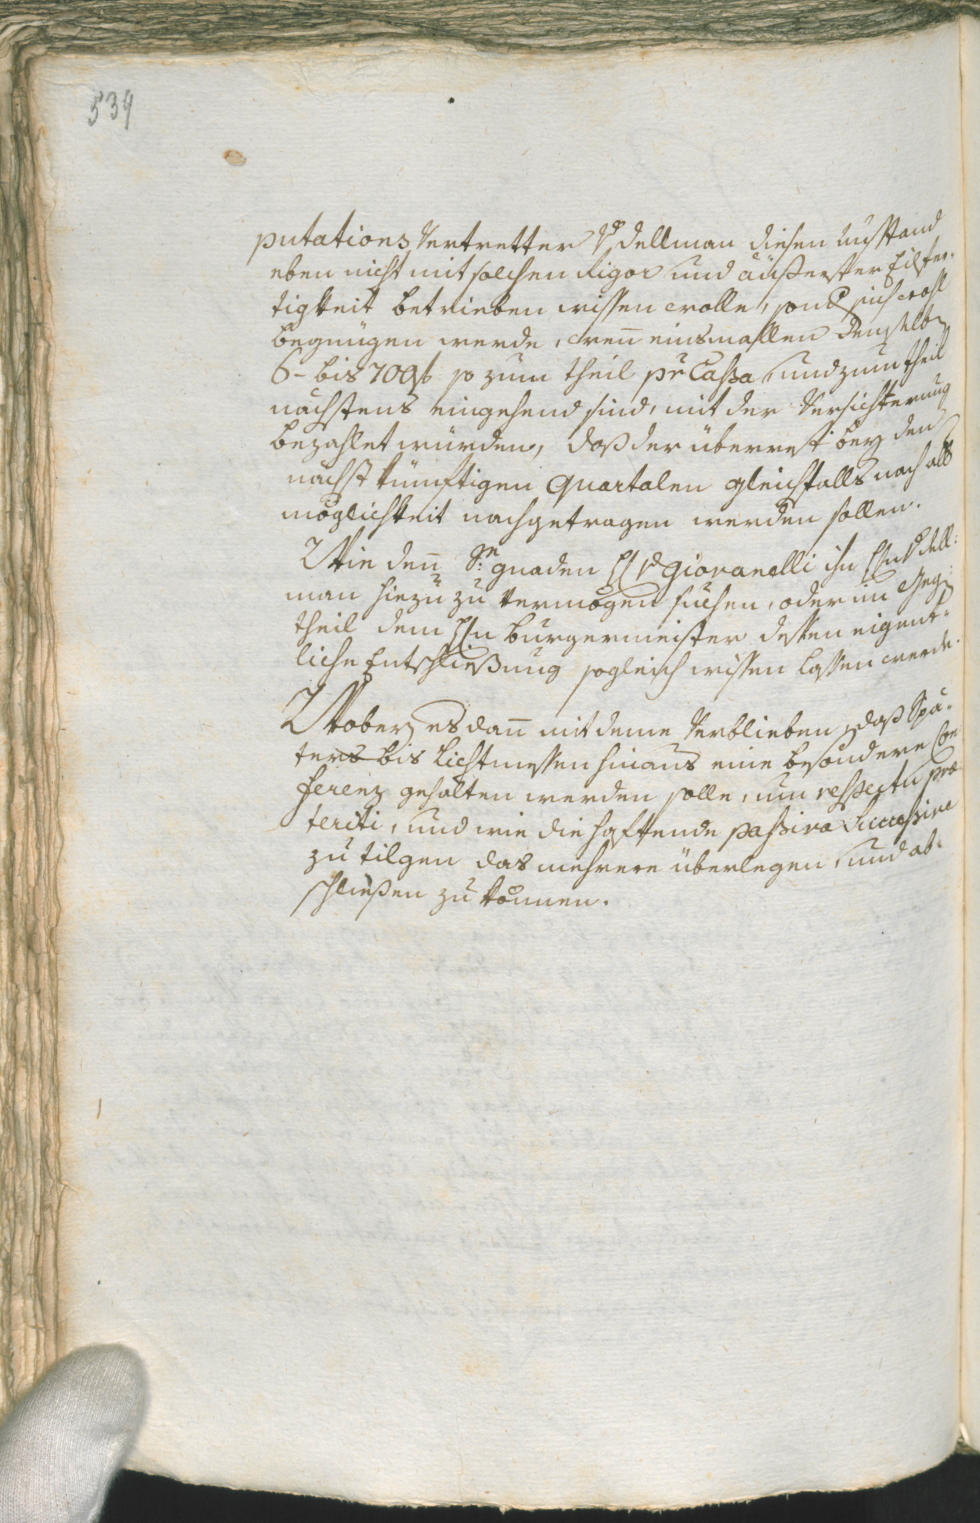 539
putations Vertretter v: dellman diesen ausstand
eben nicht mit solchen Rigor und äußerster Eilfer-
tigkeit betrieben wissen wolle, sond: sich wohl
begnügen werde, wen̅ einsmahlen demselb:
6- bis 700 f so zum theil pr Cassa, und zum theil
nächstens eingehend sind, mit der Versicherung
bezahlet würden, daß der überrest bey den
nächst künftigen quartalen gleichfalls nach all
möglichkeit nachgetragen werden sollen.
Wie den̅ Se: gnaden H: v: Giovanelli ihn H:n v: dell-
man hiezu zu vermögen suchen, oder im Geg:
theil dem H:n burgermeister dessen eigent-
liche Entschließung sogleich wissen lassen werde.
Wobey es dan̅ mit deme verblieben, daß spä-
ters bis Lichtmessen hinaus eine besondere Con
ferenz gehalten werden solle, um respectu præ
teriti, und wie die haftende passiva successive
zu tilgen das mehrere überlegen, und ab-
schließen zu können.